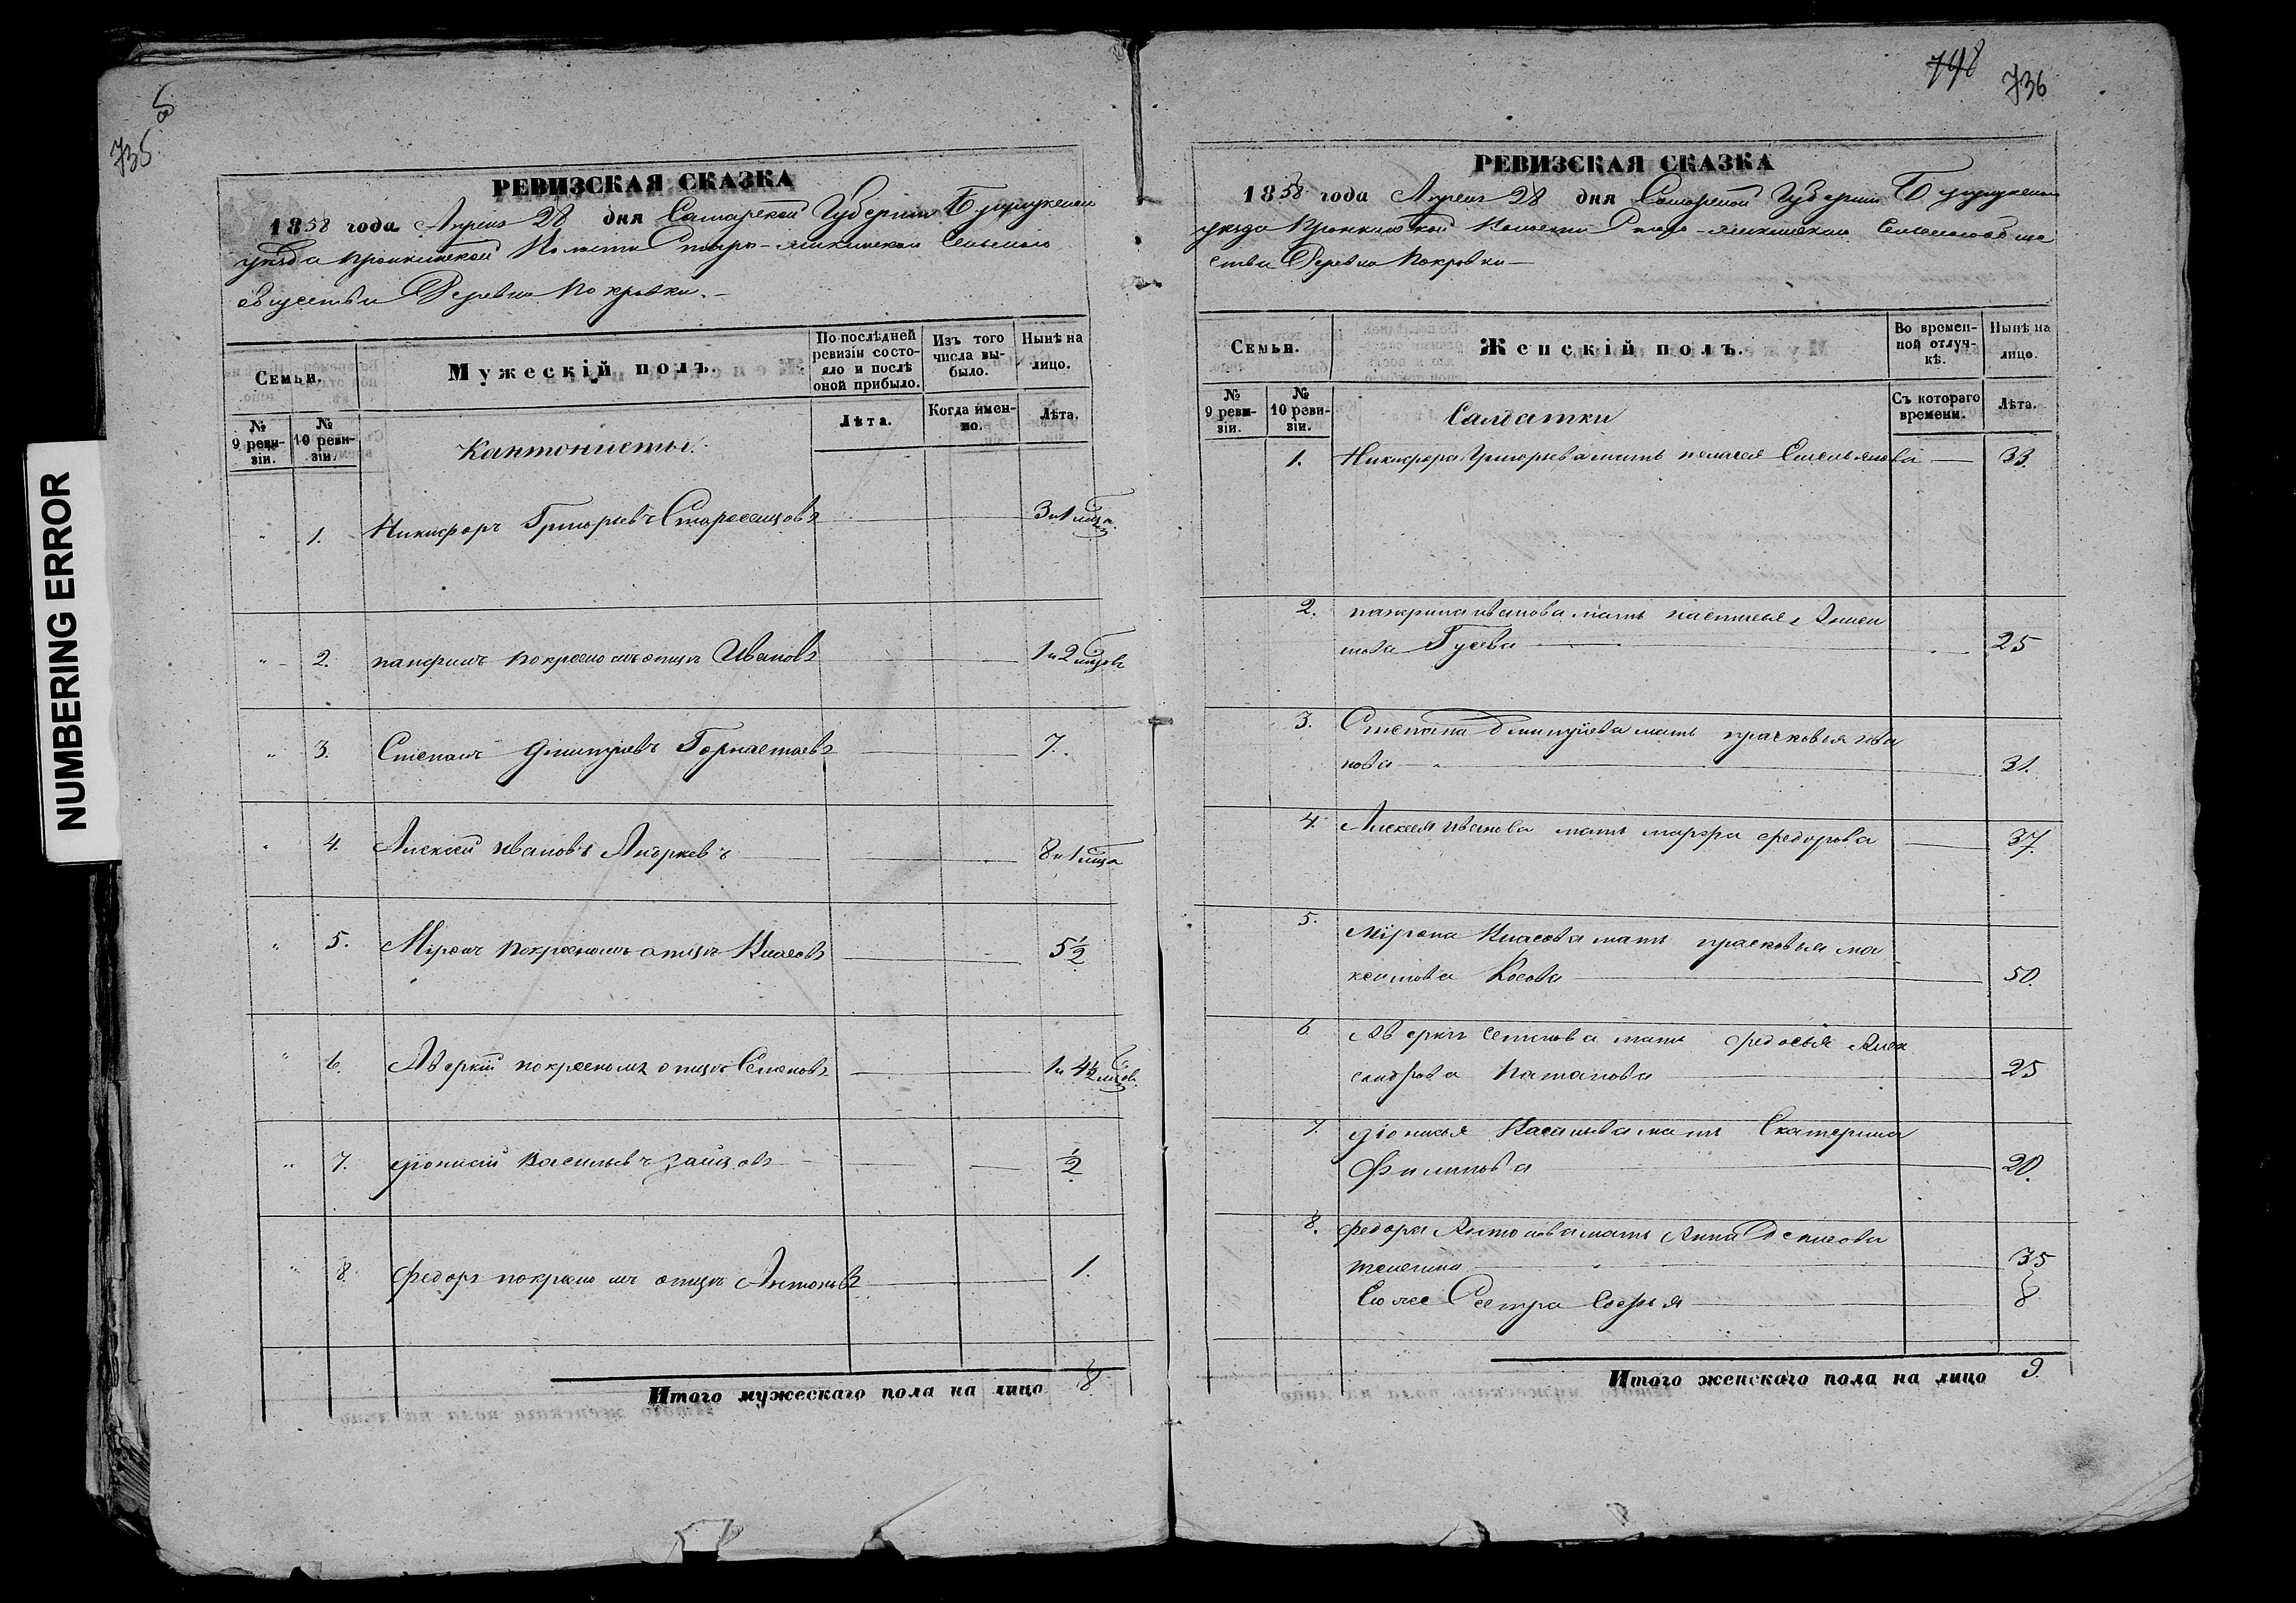 NUMBERING ERROR
735
РЕВИЗСКАЯ СКАЗКА
1858 года Апреля 28 дня Самарской Губернии Бузулукскаго
уезда Пронькинской Волости Старо-
общества Деревни Покровки.
Семьи.
Мужескій полъ.
По послѣдней ревизіи состояло и послѣ оной прибыло.
Изъ того числа выбыло.
Нынѣ на лицо.
№ 9 ревизіи.
№ 10 ревизіи.
Кантонисты.
Лѣта.
Когда именно.
Лѣта.
1. Никифоръ Григорьевъ 3 и 1 мца
2. панфилъ по крестному отцу Ивановъ 1 и 2 мцовъ
3. Степанъ Дмитріевъ Горностаевъ 7.
4. Алексей Ивановъ Андреевъ 8 и 1 мца
5. Міронъ по крестному отцу Власовъ 5 1/2
6. Аверкій по крестному отцу Семеновъ 1 и 4 1/2 мцов
7. Діонисій Васильевъ Зайцовъ 1/2
8. Федоръ по крестному отцу Антоновъ 1.
Итого мужескаго пола на лицо 8
748 736
РЕВИЗСКАЯ СКАЗКА
1858 года Апреля 28 дня Самарской Губернии Бузулукскаго
уезда Пронькинской Волости Старо-
ства Деревни Покровки
Семьи.
Женскій полъ.
Во временной отлучкѣ.
Нынѣ на лицо.
№ 9 ревизіи.
№ 10 ревизіи.
Салдатки
Съ котораго времени.
Лѣта.
1. Никифора Григорьева мать пелагея Емельянова 33
2. панфила иванова мать настасья
Гусева 25
3. Степана дмитріева мать прасковья ива
нова 31.
4. Алексея иванова мать марфа федорова 37.
5. Мірона Власова мать прасковья ма
ксимова Косова 50.
6. Аверкія семенова мать федосья Алек
сандрова Потапова 25
7. Діонисья Васильева мать Екатерина
Филипова 20.
8. федора Антонова мать Анна Денисова
35
Ево же Сестра Софья 8
Итого женскаго пола на лицо 9